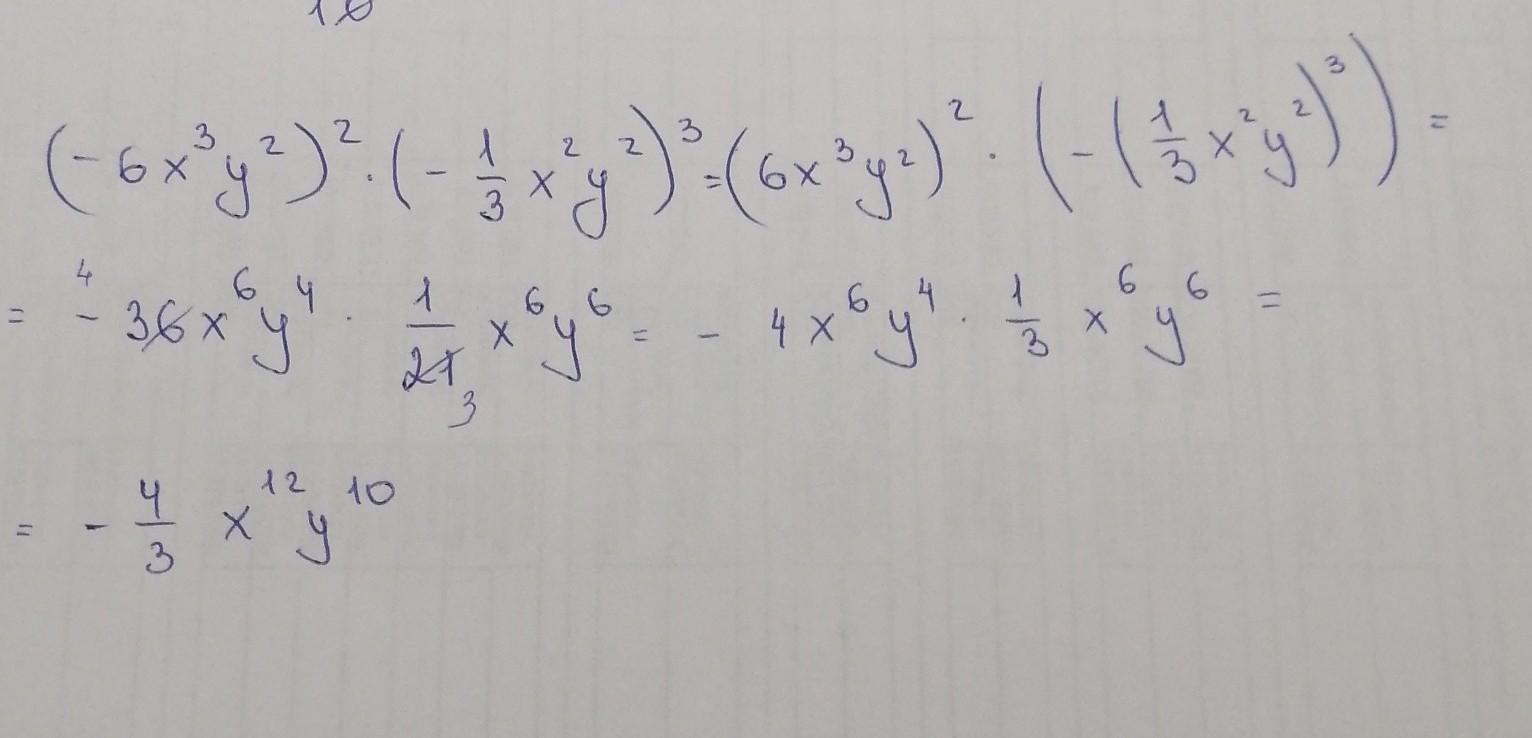 (-6x³y²)²·(-1/3 x²y²)³=(6x³y²)²·(-(1/3 x²y²)³)=
= -36x⁶y⁴· 1/27 x⁶y⁶ = - 4x⁶y⁴· 1/3 x⁶y⁶ =
= - 4/3 x¹²y¹⁰